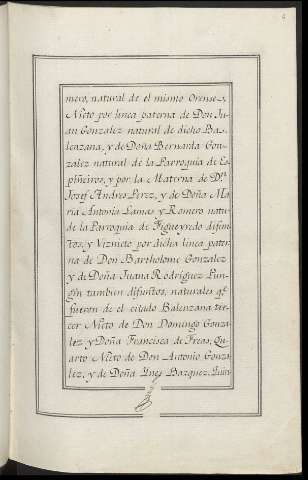 mero, natural de el mismo Orense,
Nieto por linea paterna de Don Ju-
an Gonzalez natural de dicho Bal-
enzana, y de Doña Bernarda Gon-
zalez natural de la Parroquia de Es-
piñeiros, y por la Materna de Dn.
Josef Andres Perez, y de Doña Ma-
ria Antonia Lamas y Romero natu-
de la Parroquia de Figueyredo difun-
tos, y Viznieto por dicha linea pater
na de Don Bartholome Gonzalez
y de Doña Juana Rodriguez Pun-
gin tambien difuntos, naturales qe.
fueron de el citado Balenzana ter-
cer Nieto de Don Domingo Gonza-
lez y Doña Francisca de Freas, Qu-
arto Nieto de Don Antonio Gonza
lez, y de Doña Ynes Bazquez, Quin